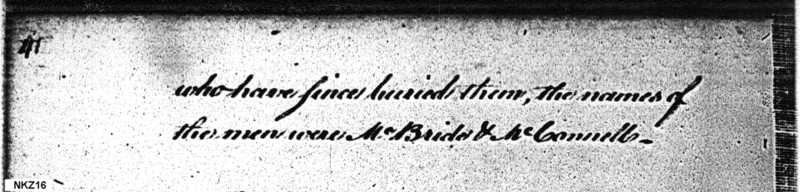 41
who have since buried them, the names of
the men were McBride & McConnell —
NKZ16